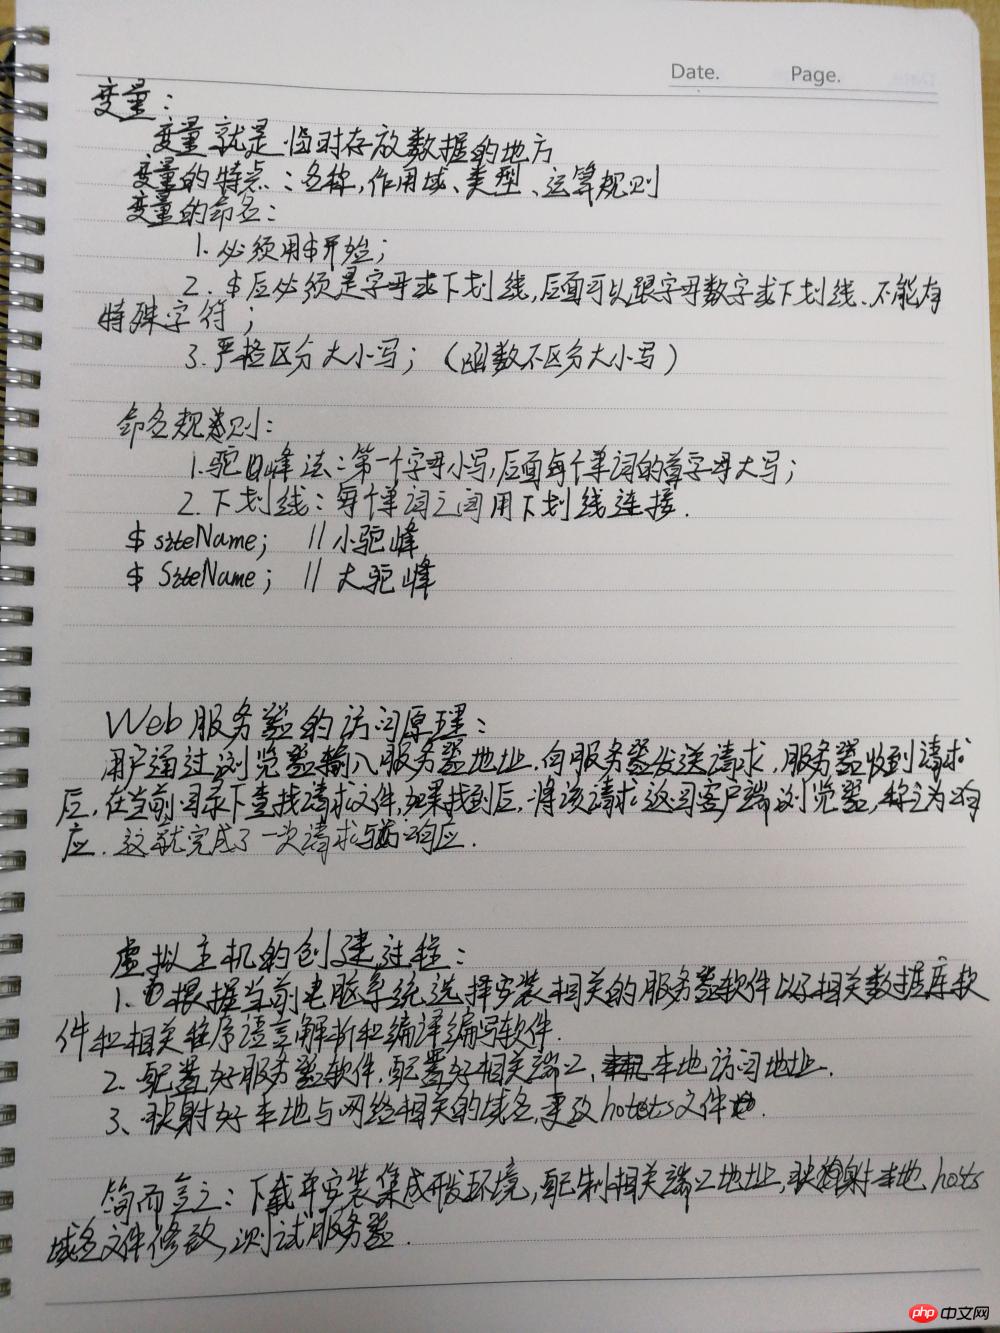 Date. Page.
变量：
变量就是临时存放数据的地方
变量的特点：名称，作用域、类型、运算规则
变量的命名：
1. 必须用$开始；
2. $后必须是字母或下划线，后面可以跟字母数字或下划线、不能有
特殊字符；
3. 严格区分大小写；（函数不区分大小写）
命名规则：
1. 驼峰法：第一个字母小写，后面每个单词的首字母大写；
2. 下划线：每个单词之间用下划线连接.
$ siteName； // 小驼峰
$ SiteName； // 大驼峰
Web服务器的访问原理：
用户通过浏览器输入服务器地址.向服务器发送请求，服务器收到请求
后，在当前目录下查找请求文件，如果找到后，将该请求返回客户端浏览器，称之为响
应.这就完成了一次请求与响应.
虚拟主机的创建过程：
1. 根据当前电脑系统选择安装相关的服务器软件以及相关数据库软
件和相关程序语言解析和编译编写软件.
2. 配置好服务器软件，配置好相关端口、本地访问地址.
3、映射好本地与网络相关的域名，更改hosts文件.
简而言之：下载并安装集成开发环境，配制相关端口地址，映射本地hosts
域名文件修改，测试服务器.
php 中文网